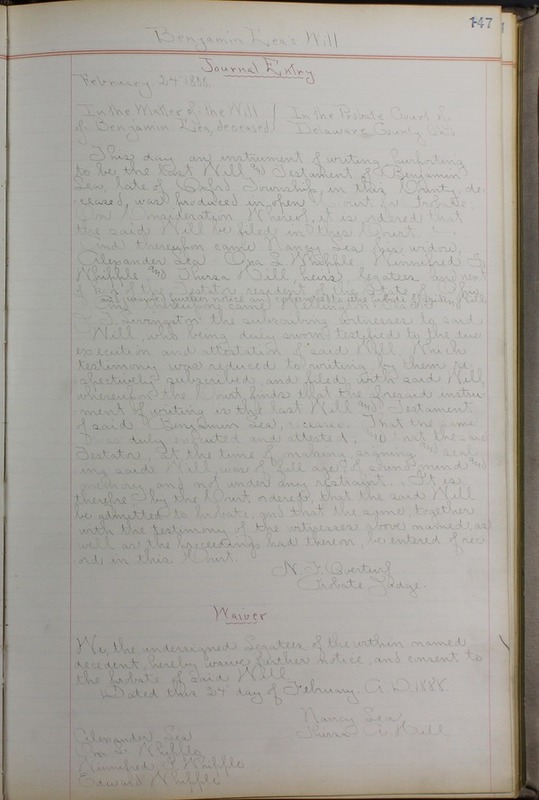 147
Benjamin Lea's Will
Journal Entry
February 24 1888.
In the Matter of the Will / In the Probate Court of
of Benjamin Lea, deceased / Delaware County Ohio
This day an instrument of writing purporting
to be the Last Will and Testament of Benjamin
Lea, late of Oxford Township, in this County, de-
ceased, was produced in open Court for Probate.
On Consideration Whereof, it is ordered that
the said Will be filed in this Court.
And thereupon came Nancy Lea his widow,
Alexander Lea Ora L Whipple Winnifred
Whipple and Thirsa Hill heirs legatees and next
of kin of the Testator resident of the State of Ohio
and waived further notice and consented to the probate of said Will.
And thereupon came
the subscribing witnesses to said
Will, who being duly sworn testified to the due
execution and attestation of said Will. Which
testimony was reduced to writing by them re-
spectively subscribed and filed with said Will
whereupon the Court finds that the aforesaid instru-
ment of writing is the last Will and Testament
of said Benjamin Lea, deceased. That the same
was duly executed and attested; and that the said
Testator, at the time of making, signing and seal-
ing said Will, was of full age, of sound mind and
memory, and not under any restraint. It is
therefore by the Court ordered, that the said Will
be admitted to probate, and that the same, together
with the testimony of the witnesses above named, as
well as the proceedings had thereon, be entered of rec-
ord, in this Court.
N. F. Overturf
Probate Judge.
Waiver
We, the undersigned Legatees of the within named
decedent, hereby waive further notice, and consent to
the probate of said Will
Dated this 24 day of February A D 1888.
Nancy Lea
Alexander Lea
Thirsa A. Hill
Ora L. Whipple
Winnifred P Whipple
Edward Whipple